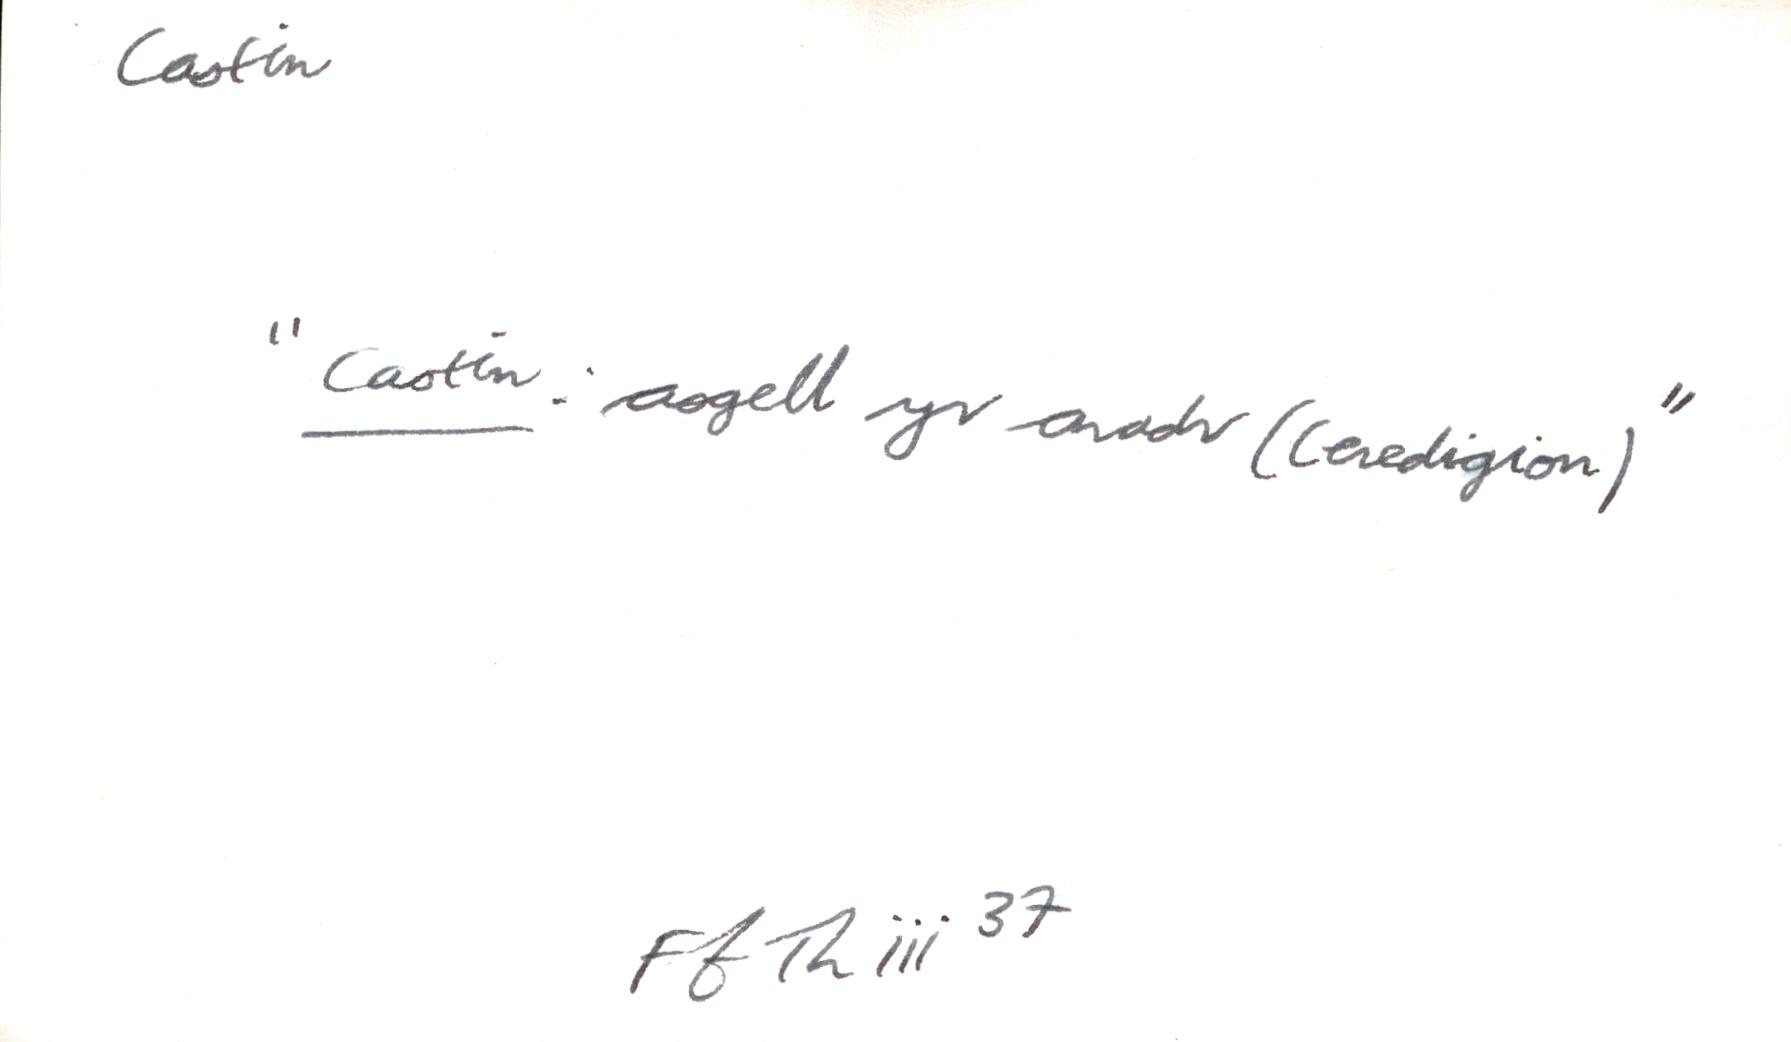 Castin
"Castin: asgell yr aradr (Ceredigion)"
Ff Th iii 37